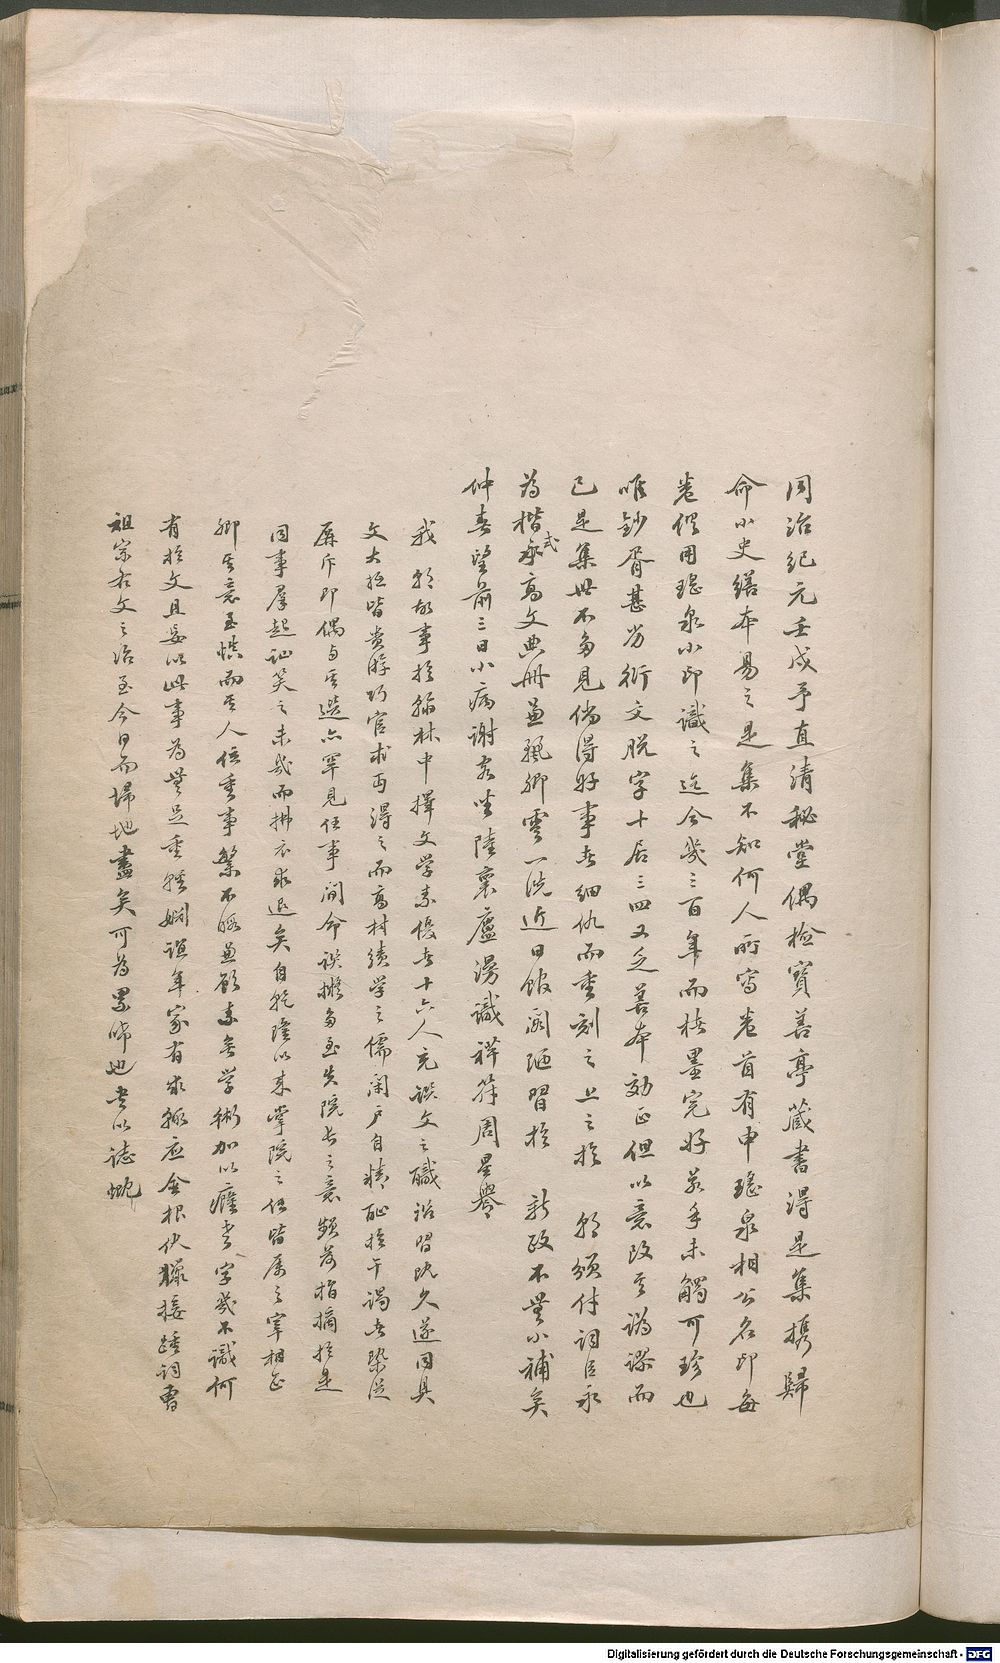 同治紀元壬戌予直清秘堂偶檢寶善亭藏書得是集攜歸
命小史繕本易之是集不知何人所寫卷首有申瑤泉相公名印每
卷俱用瑤泉小印識之迄今幾三百年而楮墨完好若手未觸可珍也
唯鈔胥甚劣衍文脫字十居三四又乏善本勘正但以意改其譌謬而
已是集世不多見倘得好事者細仇而重刻之上之於 朝頒付詞臣永
為楷式永高文典冊並軼卿雲一洗近日館閣陋習於 新政不無小補矣
仲春望前三日小病謝客坐陸裏廬漫識祥符周星譽
我 朝故事於翰林中擇文學素優者十六人充譔文之職沿習既久遂同具
文大抵皆貴游巧宦求而得之而高材績學之儒閉戶自精恥於干謁者槩從
屏斥即偶與其選亦罕見任事間命譔擬多至失院長之意頻蒙指摘於是
同事羣起訕笑之未幾而拂衣求退矣自乾隆以來掌院之任皆屬之宰相正
卿其意至慎而其人位重事繁不暇兼顧素無學術加以癃老字幾不識何
有於文且妄以此事為無足重輕姻誼年家有求輒應金根伏獵接踵詞曹
祖宗右文之治至今日而埽地盡矣可為累唏也書以誌慨
Digitalisierung gefördert durch die Deutsche Forschungsgemeinschaft - DFG